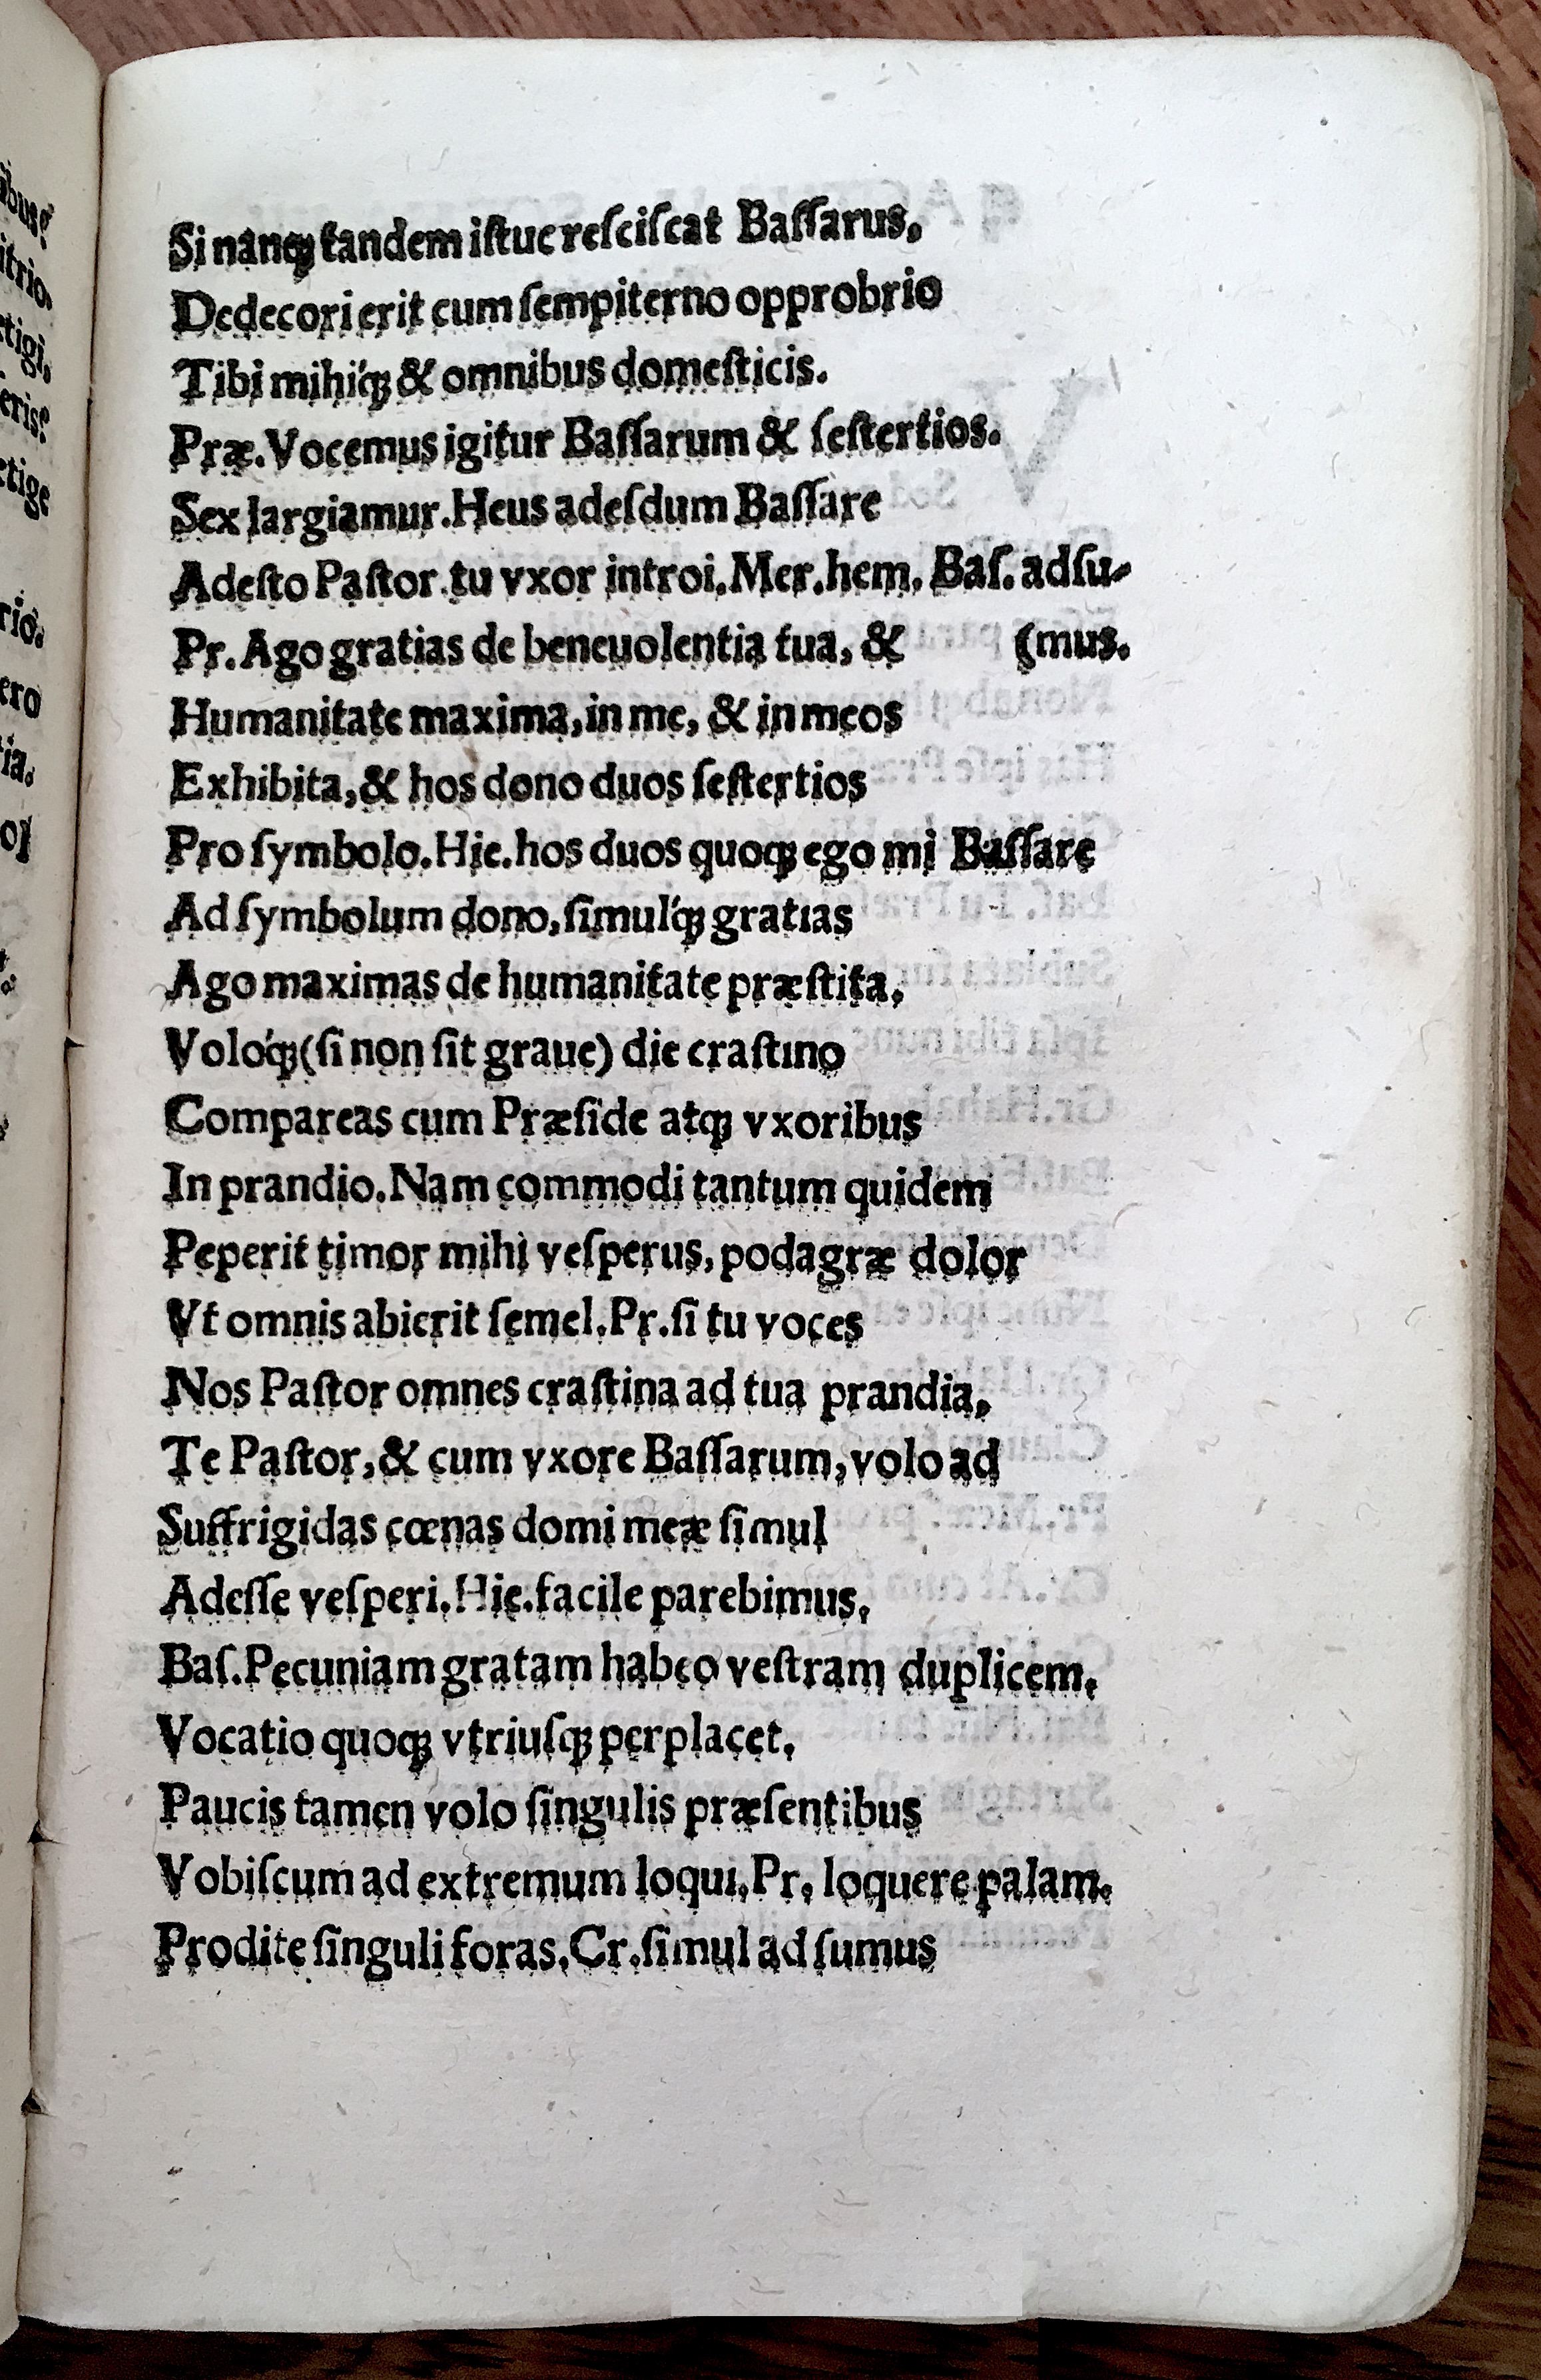 Si nanq; tandem iſtuc reſciſcat Baſſarus,
Dedecori erit cum ſempiterno opprobrio
Tibi mihiq́; & omnibus domeſticis.
Præ. Vocemus igitur Baſſarum & ſeſtertios.
Sex largiamur. Heus adeſdum Baſſare
Adeſto Paſtor. tu vxor introi. Mer. hem. Baſ. adſu-
Pr. Ago gratias de beneuolentia tua, & (mus.
Humanitate maxima, in me, & in meos
Exhibita, & hos dono duos ſeſtertios
Pro ſymbolo. Hie. hos duos quoq; ego mi Baſſare
Ad ſymbolum dono, ſimulq́; gratias
Ago maximas de humanitate præſtita,
Voloq́; (ſi non ſit graue) die craſtino
Compareas cum Præſide atq; vxoribus
In prandio. Nam commodi tantum quidem
Peperit timor mihi veſperus, podagræ dolor
Vt omnis abierit ſemel. Pr. ſi tu voces
Nos Paſtor omnes craſtina ad tua prandia,
Te Paſtor, & cum vxore Baſſarum, volo ad
Suffrigidas cœnas domi meæ ſimul
Adeſſe veſperi. Hie. facile parebimus,
Baſ. Pecuniam gratam habeo veſtram duplicem,
Vocatio quoq; vtriuſq; perplacet,
Paucis tamen volo ſingulis præſentibus
Vobiſcum ad extremum loqui, Pr, loquere palam.
Prodite ſinguli foras, Cr. ſimul ad ſumus